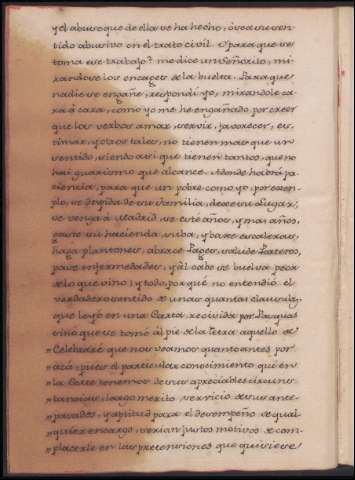 y el abuso que de ella se ha hecho, ó sea su sen-
tido abusivo en el trato civil. Y para que se
toma ese trabajo? me dice un Señorito, mi-
randose los encages de la buelta. Para que
nadie se engañe, respondí yo, mirandole ca-
ra á cara, como yo me he engañado por creer
que los verbos amar, servir, favorecer, es-
timar, y otros tales, no tienen mas que un
sentido, siendo asi que tienen tantos, que no
hai guarismo que alcance. Adonde habrá pa-
ciencia, para que un pobre como yo, por exem-
plo, se despida de su familia, dexe su Lugar,
se venga á Madrid, se esté años, y mas años,
gaste su hacienda, suba, y baxe escaleras,
haga plantones, abrace Pages, salude Porteros,
pase enfermedades, y al cabo se buelva peor
de lo que vino, y todo, porqué no entendió el
verdadero sentido de unas quantas clausulas,
que leyó en una Carta recivida por Pasquas
sino que se tomó al pie de la letra aquello de
„Celebraré que nos veamos quanto antes por
„acá, pues el particular conocimiento que en
„la Corte tenemos de sus apreciables circuns-
„tancias, largo merito, servicio de sus ante-
„pasados, y aptitud para el desempeño de qual-
„quier encargo, serian justos motivos de com-
„placerle en las pretensiones que quisiese